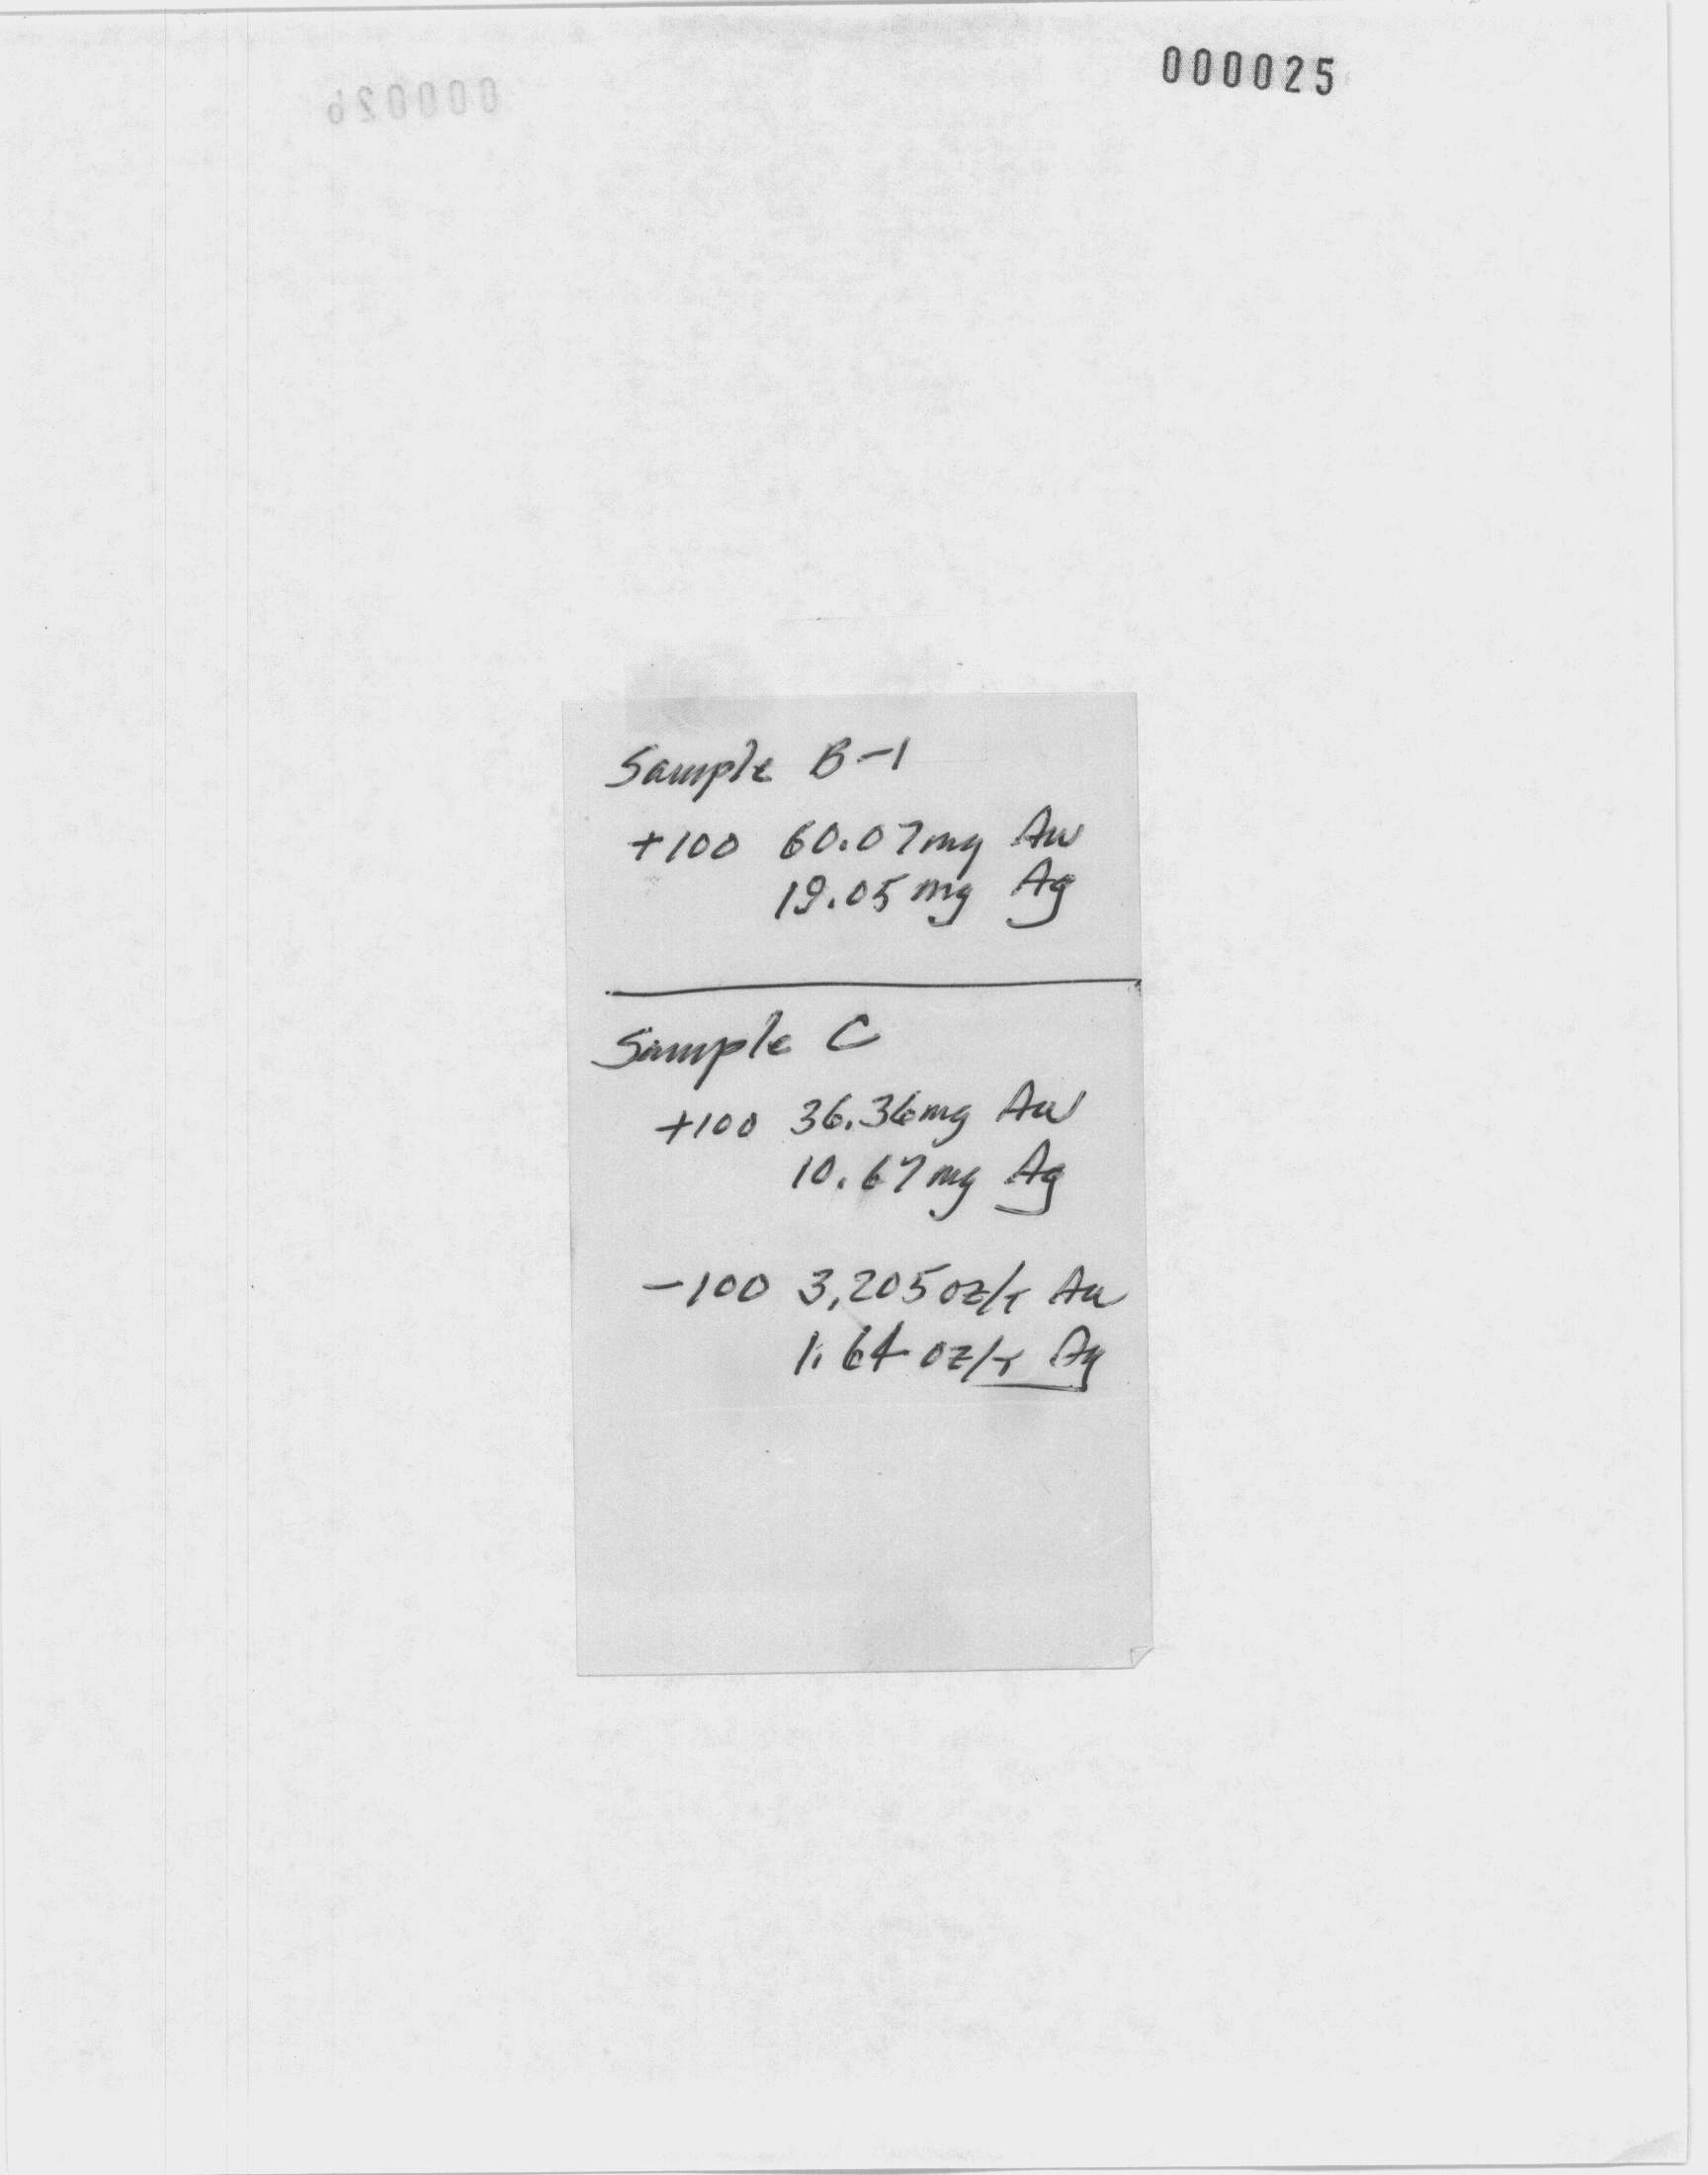 000025
000026
Sample B-1
+100 60.07mg Au
19.05mg Ag
Sample C
+100 36.36mg Au
10.67mg Ag
-100 3.205oz/T Au
1.64 oz/T Ag